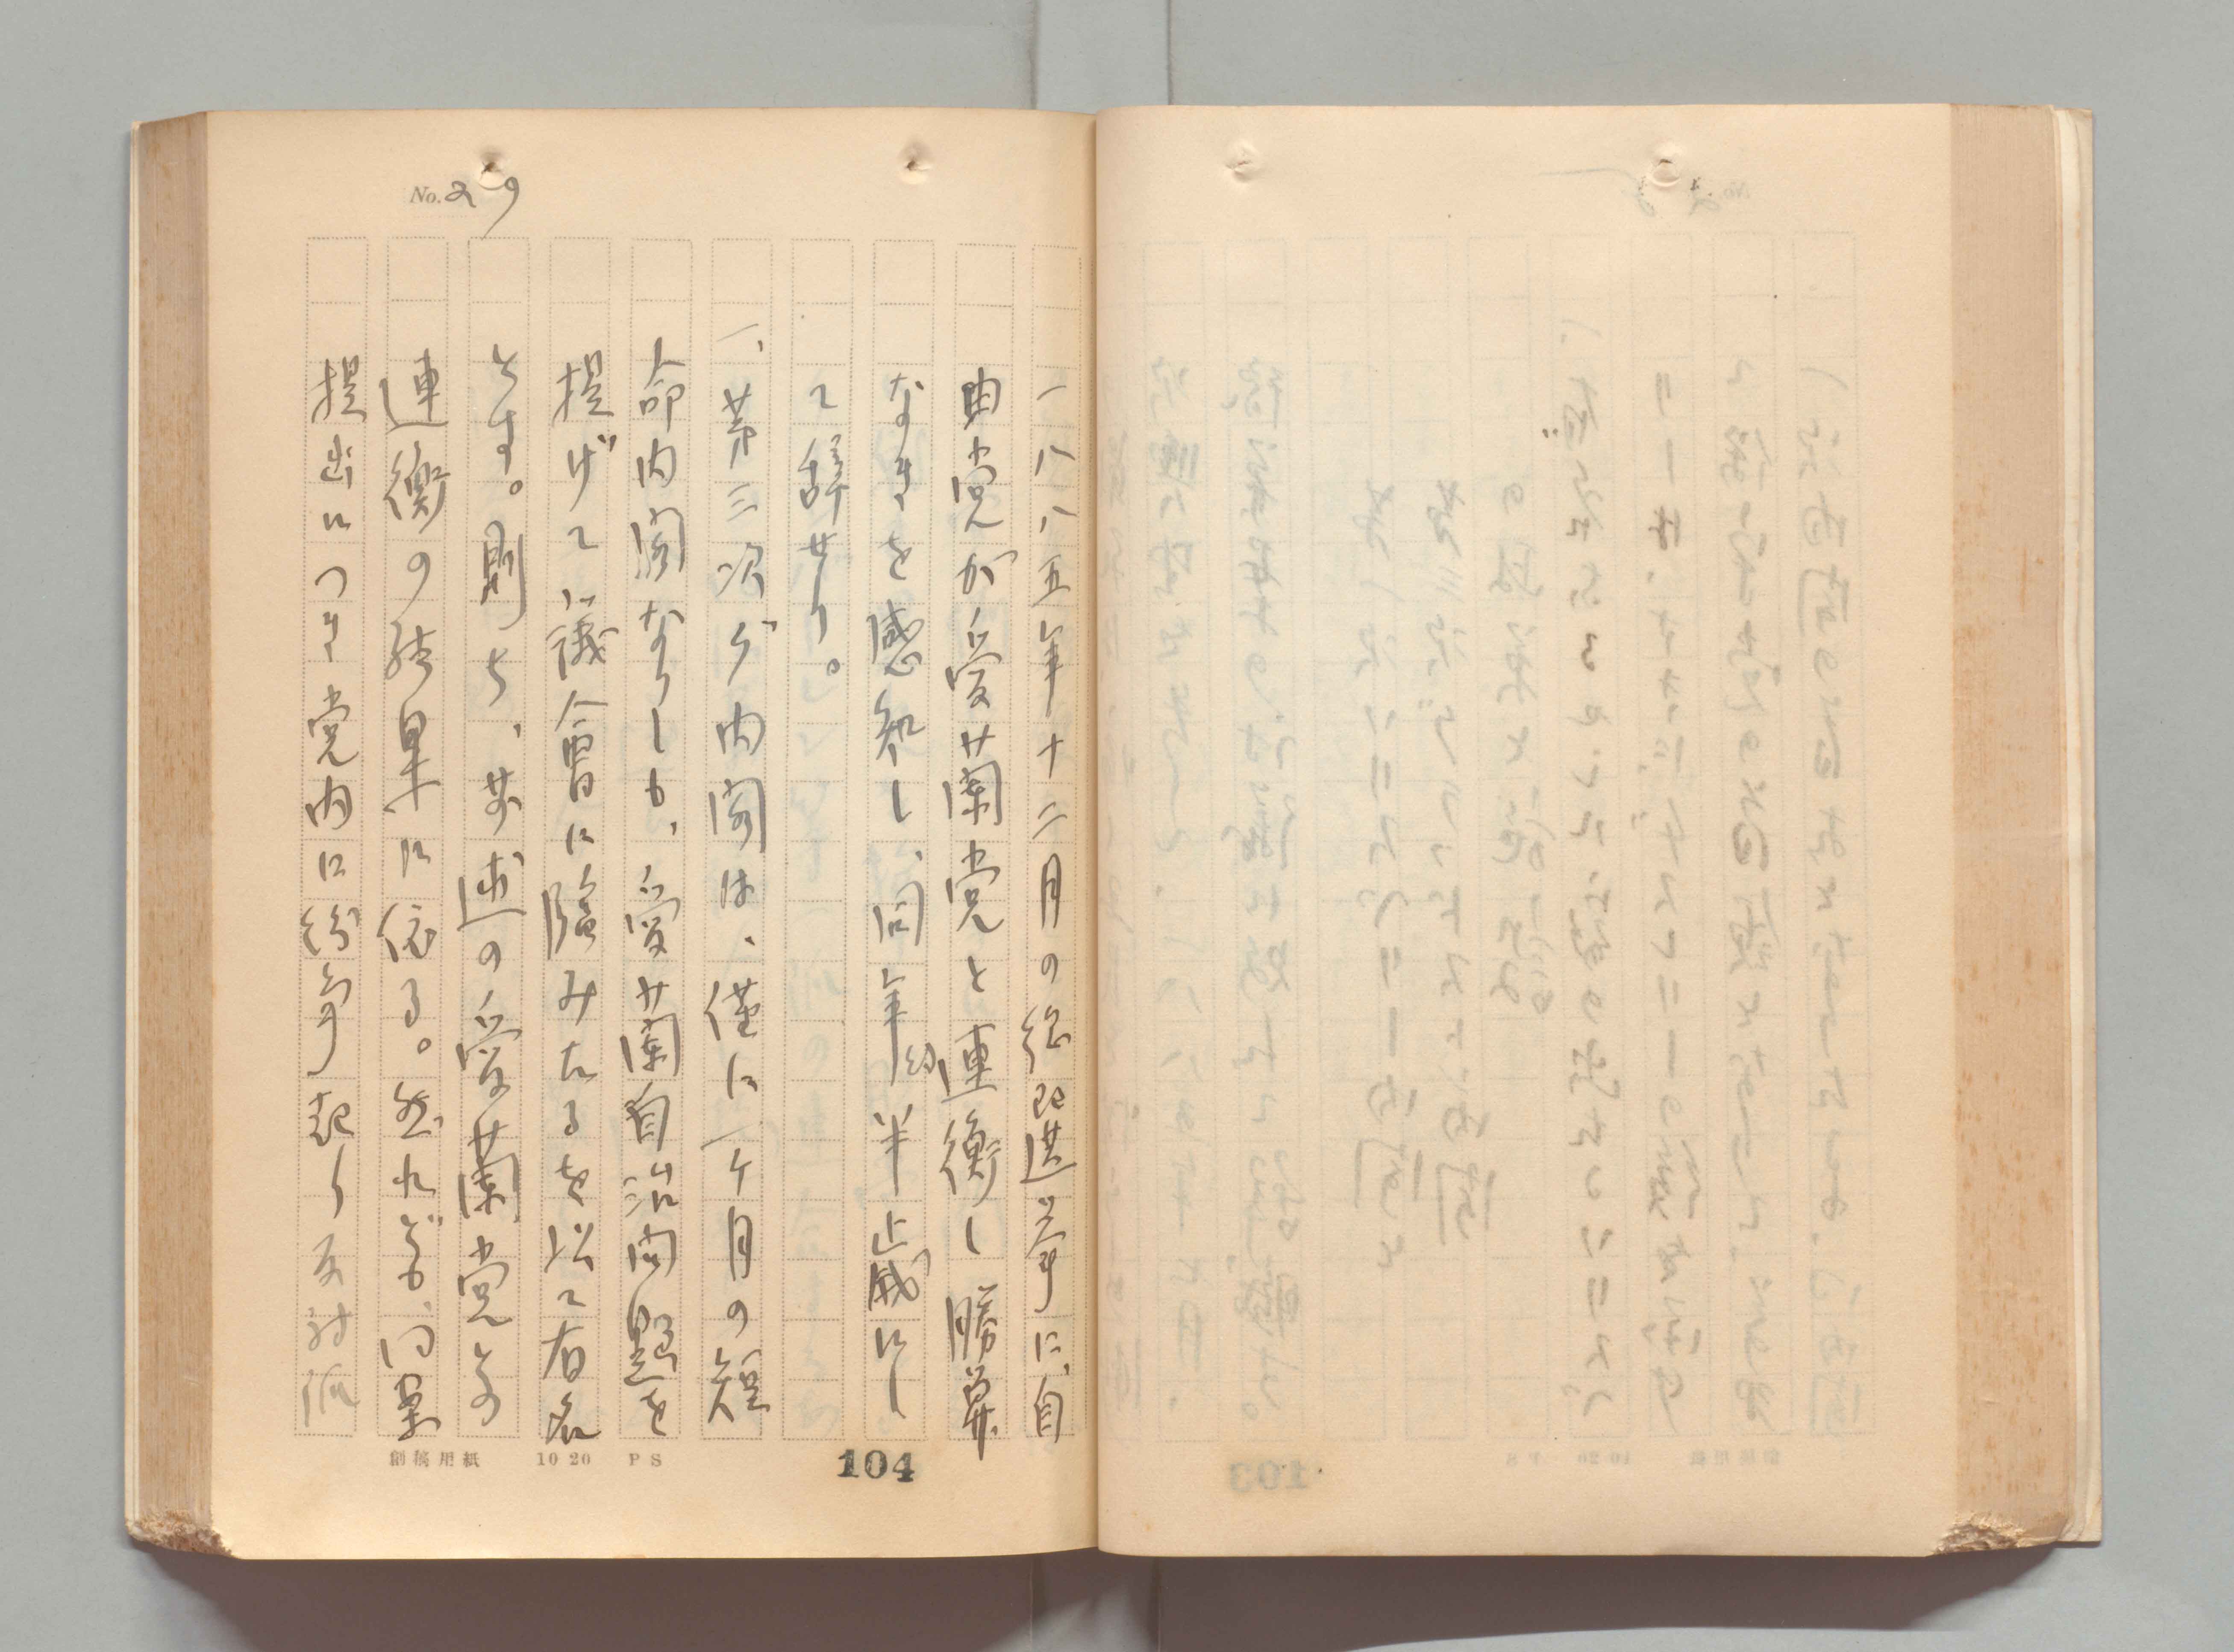 No. 29
一八八五年十二月の総選挙に、自
由党が愛蘭党と連衡し勝算
なきを感知し、同年約半歳にし
て辞せり。
一、第三次グ内閣は、僅に一ケ月の短
命内閣なりしも、愛蘭自治問題を
提げて議會に臨みたるを以て有名
とす。則ち、前述の愛蘭党との
連衡の結果に依る。然れども、同案
提出につき党内に紛争起り反対派
創稿用紙 10 20 PS
104